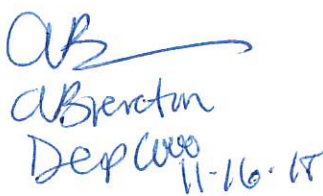 AB
ABrereton
Dep COO
11-16-18